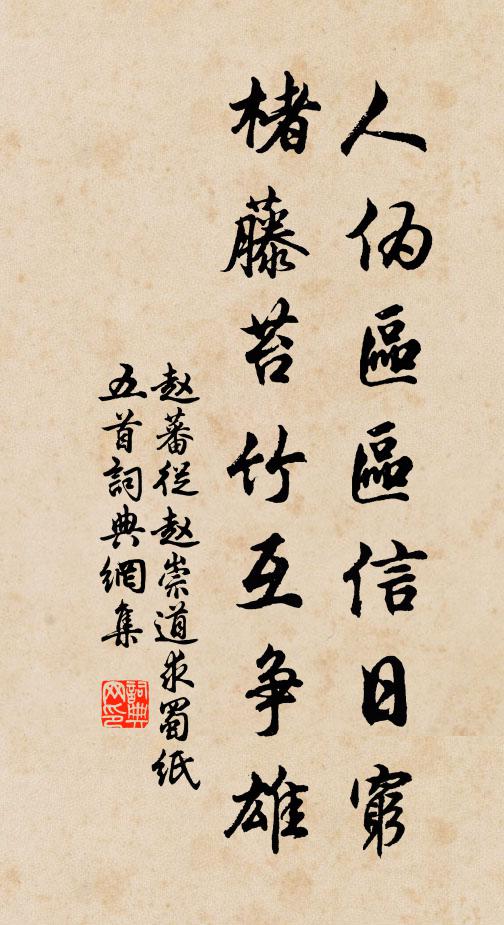 人伪區區信日窮
楮藤苔竹互争雄
赵蕃從赵崇道求蜀紙
五首詞典網集
詞典网印